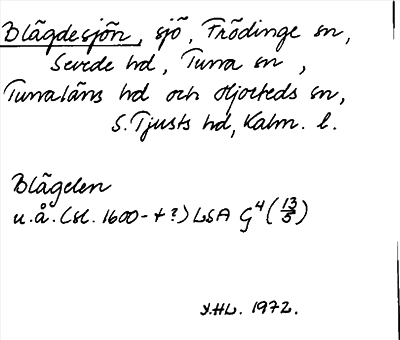 Blägdesjön, sjö, Frödinge sn,
Sevede hd, Tuna sn,
Tunaläns hd och Hjorteds sn,
S. Tjusts hd, Kalm. l.
Blägelen
u.å. (sl. 1600-t?) LSA G⁴ (13/5)
Y.HL. 1972.